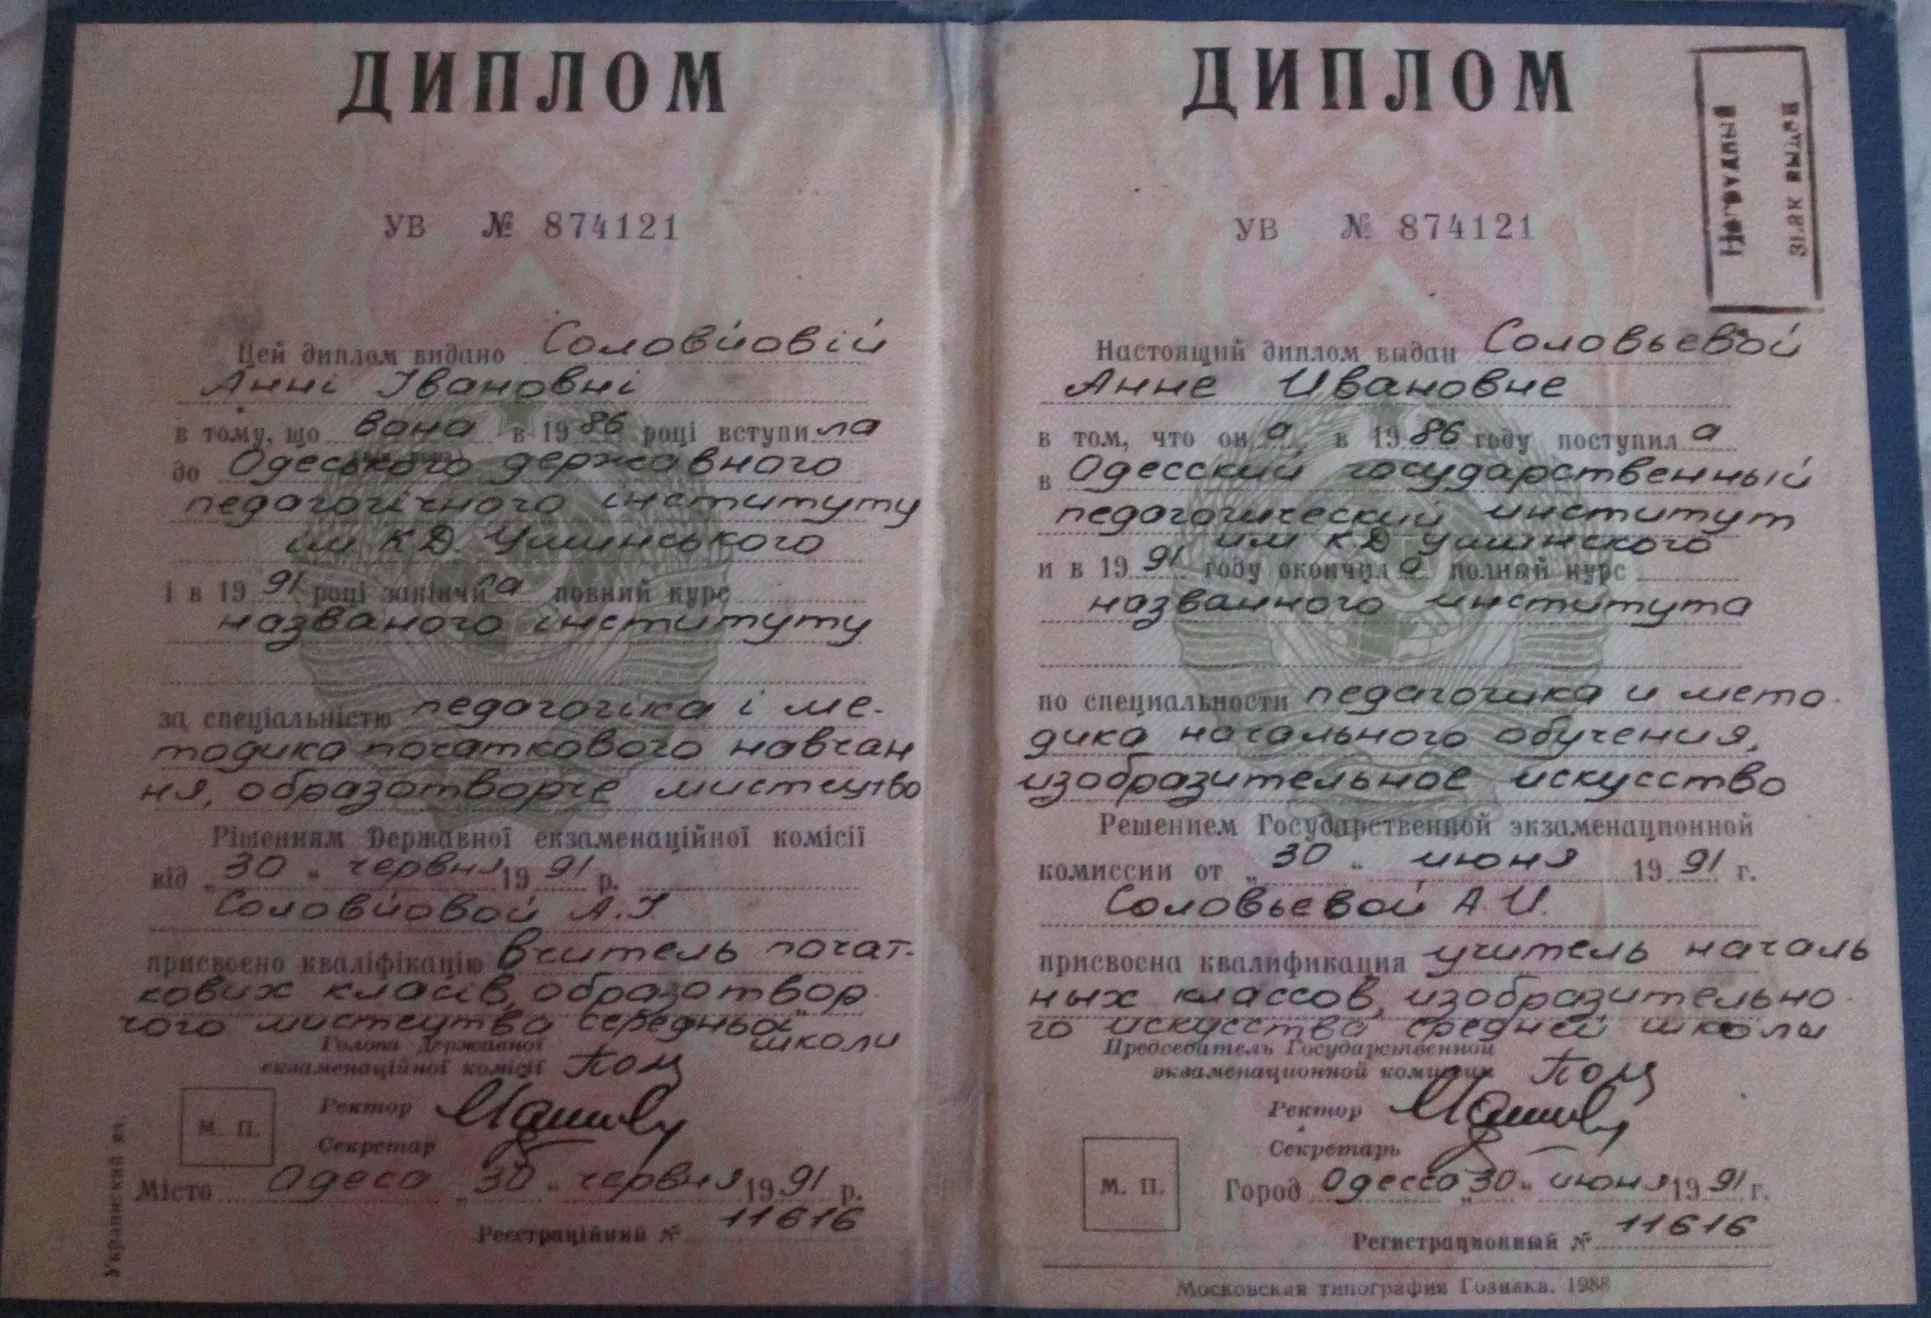 ДИПЛОМ
УВ № 874121
Цей диплом видано Соловйовій
Анні Івановні
в тому, що вона в 1986 році вступила
до Одеського державного
педагогічного інституту
ім К.Д. Ушинського
і в 1991 році закінчила повний курс
названого інституту
за спеціальністю педагогіка і ме-
тодика початкового навчан
ня, образотворче мистецтво
Рішенням Державної екзаменаційної комісії
від „30" червня 1991 р.
Соловйовой А.І.
присвоєно кваліфікацію вчитель почат-
кових класів, образотвор
чого мистецтва середньої
школи
Голова Державної
екзаменаційної комісії
М. П.
Ректор
Секретар
Місто Одеса „30" червня 1991 р.
Реєстраційний № 11616
Украинский яз.
ДИПЛОМ
Нагрудный
знак выдан
УВ № 874121
Настоящий диплом выдан Соловьевой
Анне Ивановне
в том, что она в 1986 году поступила
в Одесский государственный
педагогический институт
им К.Д Ушинского
и в 1991 году окончила полный курс
названного института
по специальности педагогика и мето-
дика начального обучения,
изобразительное искусство
Решением Государственной экзаменационной
комиссии от „30" июня 1991 г.
Соловьевой А.И.
присвоена квалификация учитель началь
ных классов, изобразительно-
го искусства средней школы
Председатель Государственной
экзаменационной комиссии
Ректор
Секретарь
М. П.
Город Одесса „30" июня 1991 г.
Регистрационный № 11616
Московская типография Гознака. 1988